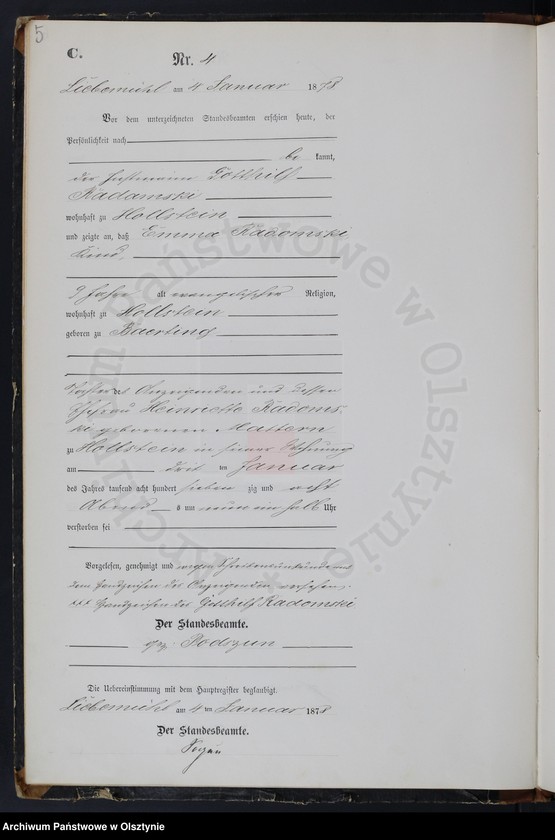 5
C.
Nr. 4
Liebemühl am 4 Januar 1878
Vor dem unterzeichneten Standesbeamten erschien heute, der
Persönlichkeit nach
be kannt,
der Gotthilf
Radamski
wohnhaft zu Hollstein
und zeigte an, daß Emma Radomski
Kind,
9 Jahre alt evangelischer Religion,
wohnhaft zu Hollstein
geboren zu Baerting
Tochter des Anzeigenden und dessen
Ehefrau Henriette Radoms-
ki geborenen Mattern
zu Hollstein in seiner Wohnung
am drit ten Januar
des Jahres tausend acht hundert sieben zig und acht
Abends um neun ein halb Uhr
verstorben sei
Vorgelesen, genehmigt und wegen Schreibensunkunde mit
dem Handzeichen des Anzeigenden versehen.
xxx Handzeichen des Gotthilf Radomski
Der Standesbeamte.
gez. Podszun
Die Uebereinstimmung mit dem Hauptregister beglaubigt.
Liebemühl am 4 ten Januar 1878
Der Standesbeamte.
Archiwum Państwowe w Olsztynie
Archiwum Państwowe w Olsztynie